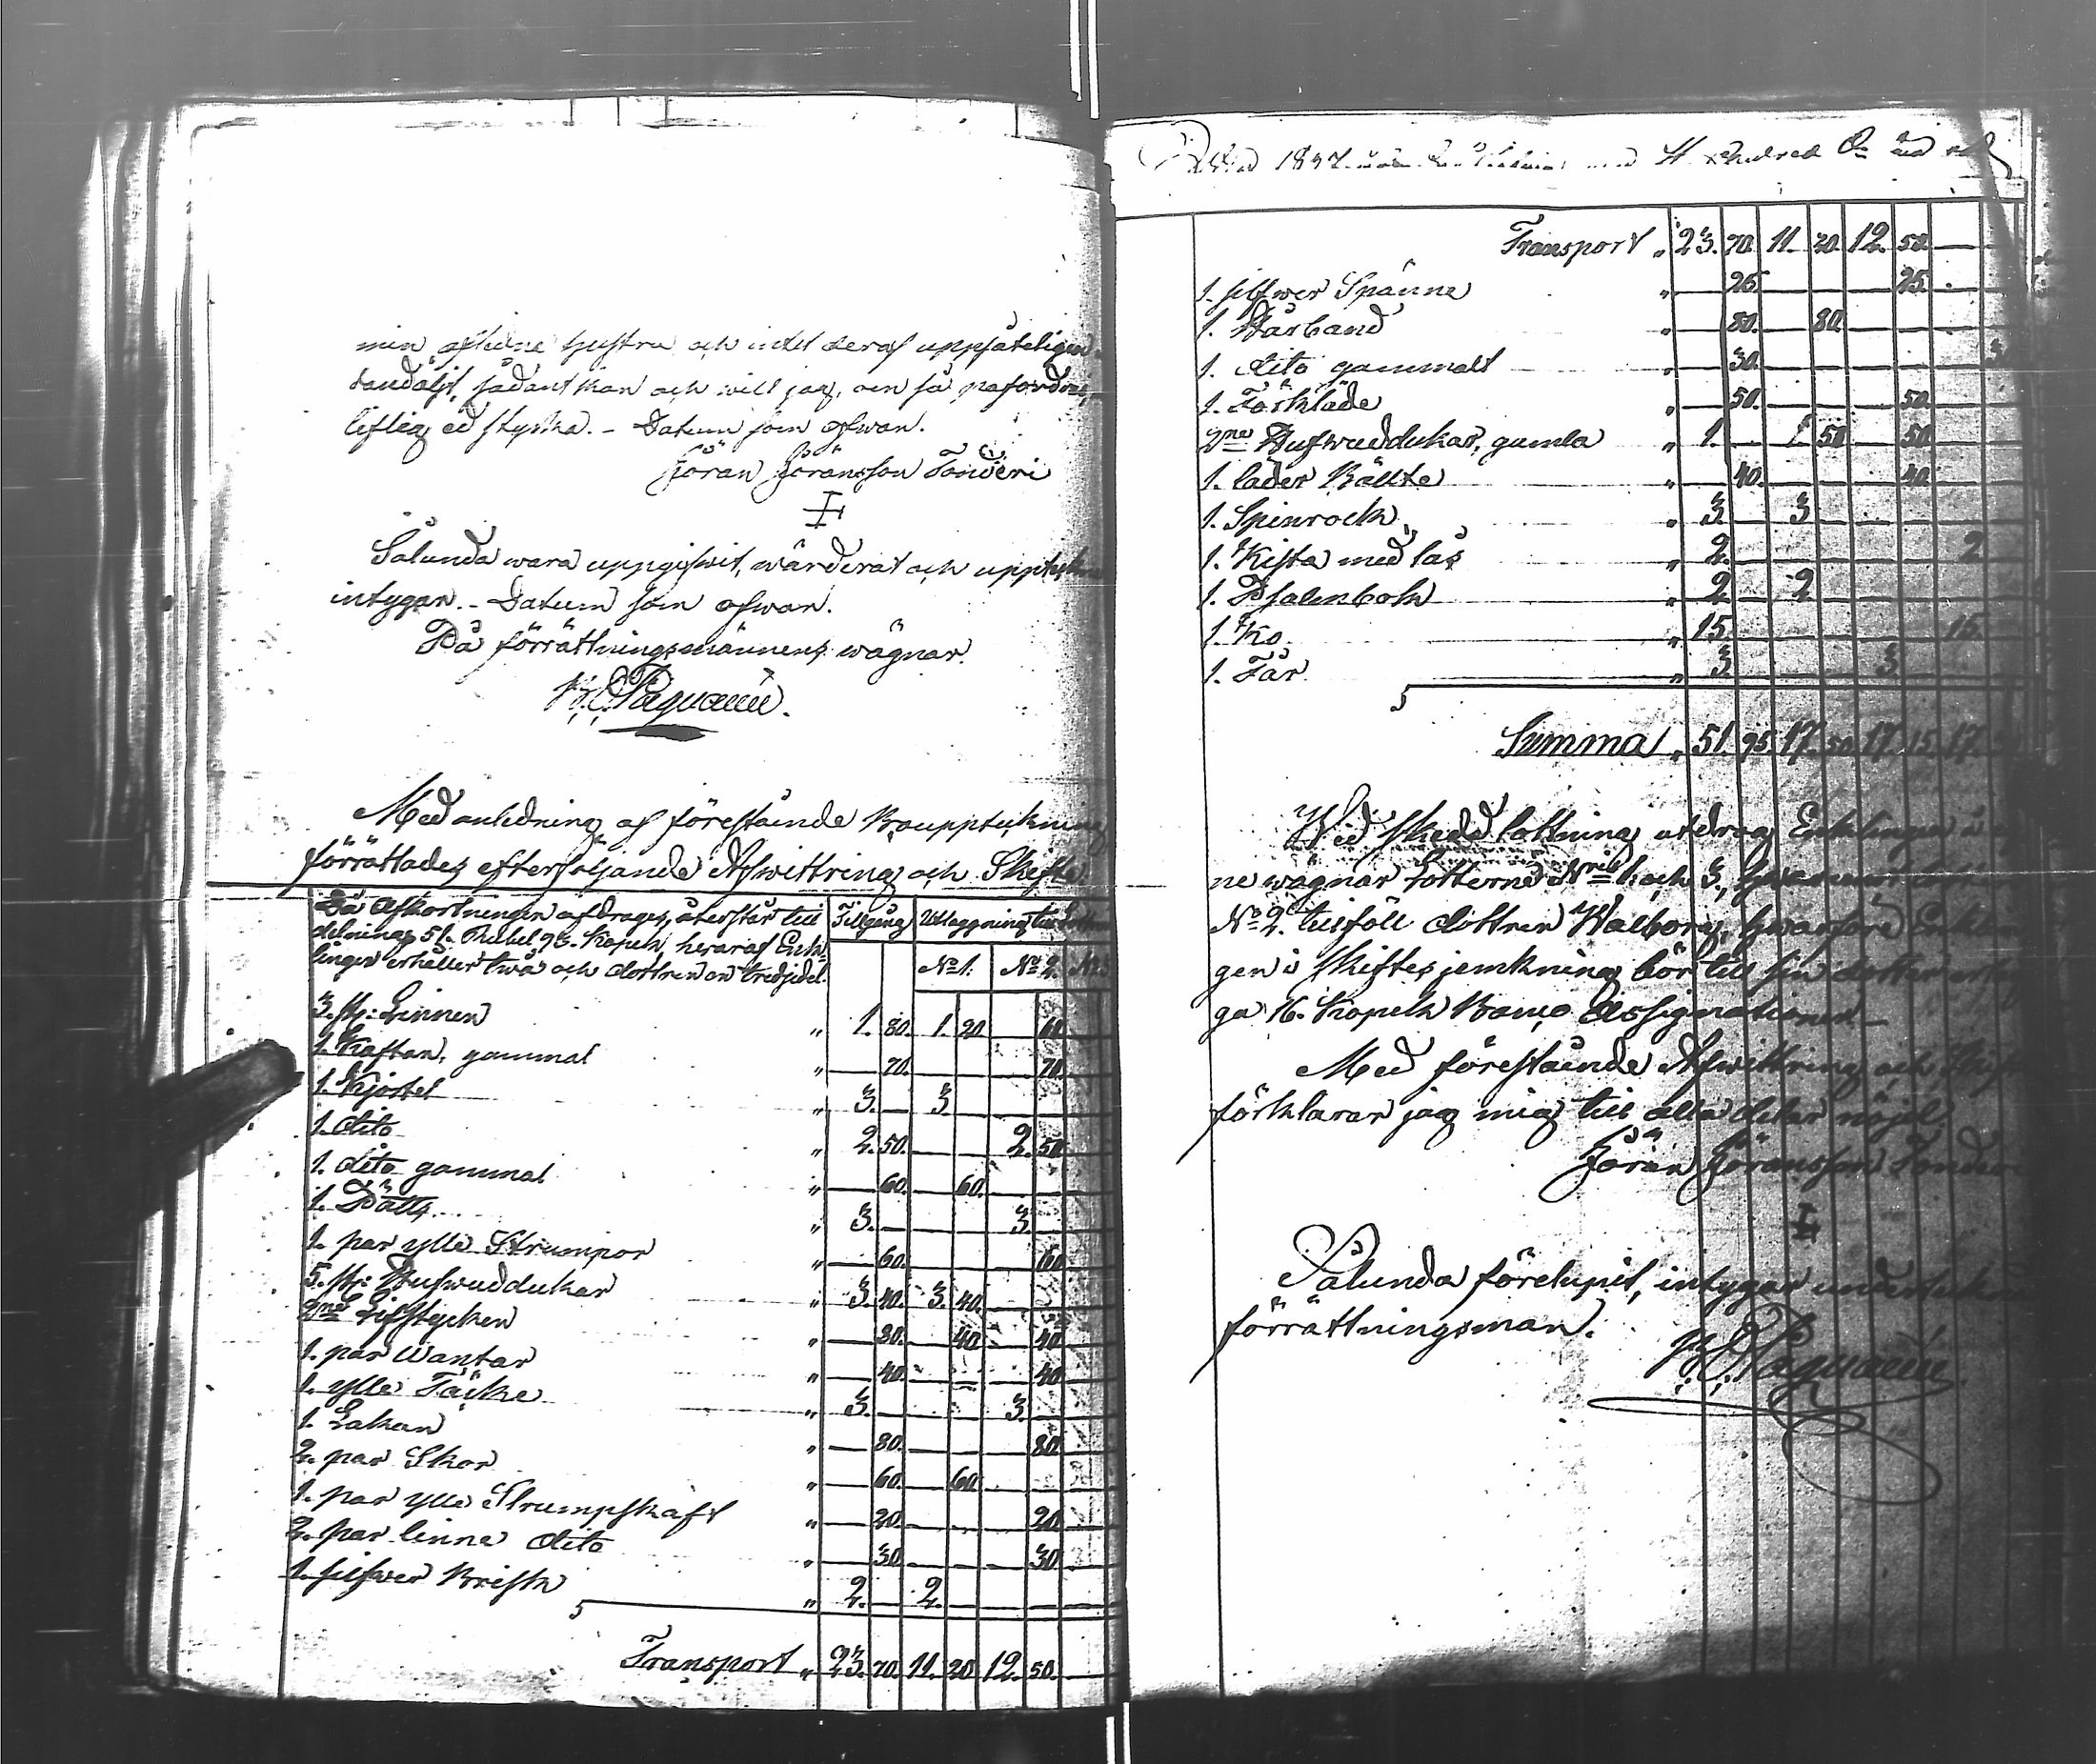 min aflidne hustru och intet deraf uppsåteligen
undaöljt, sådant kan och will jag, om så påfordras,
lifligg ed styrka. – Datum som ofwan.
Jöran Jöransson Tonderi
Sålunda wara uppgifwit, wärderat och uppteck
intygar. – Datum som ofwan.
På förrättningsmännens wägnar.
Med anledning af förestående Bouppteckning
förrättades efterföljande Afwittring och Skifte.
Då Afkortningen afdrages, återstår till
delnings 51. Rubel 95. Kopek, hwaraf Enk-
lingen erhåller twå och dottren en tredjedel.
Tillgång Utläggning till Lotter
No 1. No 2. No
3. st: Linnen " 1. 80. 1. 20. 60.
1. Kaftan, gammal " 70. 70.
1. Kjortel " 3. 3.
1. dito " 2. 50. 2. 50.
1. dito gammal " 60. 60.
1. Pätts " 3. 3.
1. par ylle Strumpor " 60. 60.
5. st: Hufwuddukar " 3. 40. 3. 40.
2ne Lifstycken " 80. 40. 40.
1. par Wantar " 40. 40.
1. ylle Täcke " 3. 3.
1. Lakan " 80. 80.
2. par Skor " 60. 60.
1. par ylle Strumpskaft " 20. 20.
2. par linne dito " 30. 30.
1. silfwer Brisk " 2. 2.
Transport " 23. 70. 11. 20. 12. 50.
1837
Transport " 23. 70. 11. 20. 12. 50.
1. silfwer Spänne " 25. 25.
1. Hårband " 80. 80.
1. dito gammalt " 30. 3
1. Förkläde " 50. 50.
2ne Hufwuddukar, gamla " 1. 50. 50.
1. läder Bällte " 40. 40.
1. Spinrock " 3. 3
1. Kista med lås " 2. 2
1. Psalmbok " 2. 2
1. Ko " 15. 15.
1. Får " 3. 3.
Summa " 51. 95 17. 50. 17. 15. 17.
Wid skedd lottning utdrog Enklingen å
ne wägnar Lotterne Nris 1. och 3.,
No 2. tillföll dottren Walborg, hwarföre Enkl
gen i skiftesjemkning bör till sin dotter
ga 16. Kopek Banco Assignationer.
Med förestående Afwittring och
förklarar jag mig till alla delar nöjd.
Jöran Jöransson Tonder
Sålunda förelupit, intygar undertekn
förrättningsman.